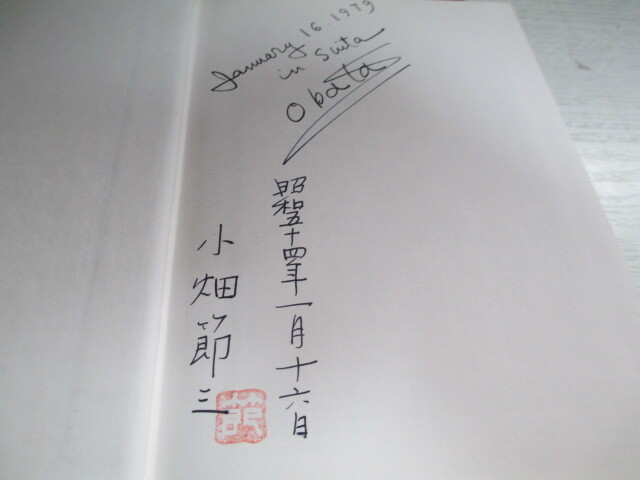 January 16. 1979
in Suita
Obata
昭和五十四年一月十六日
小畑節三
節